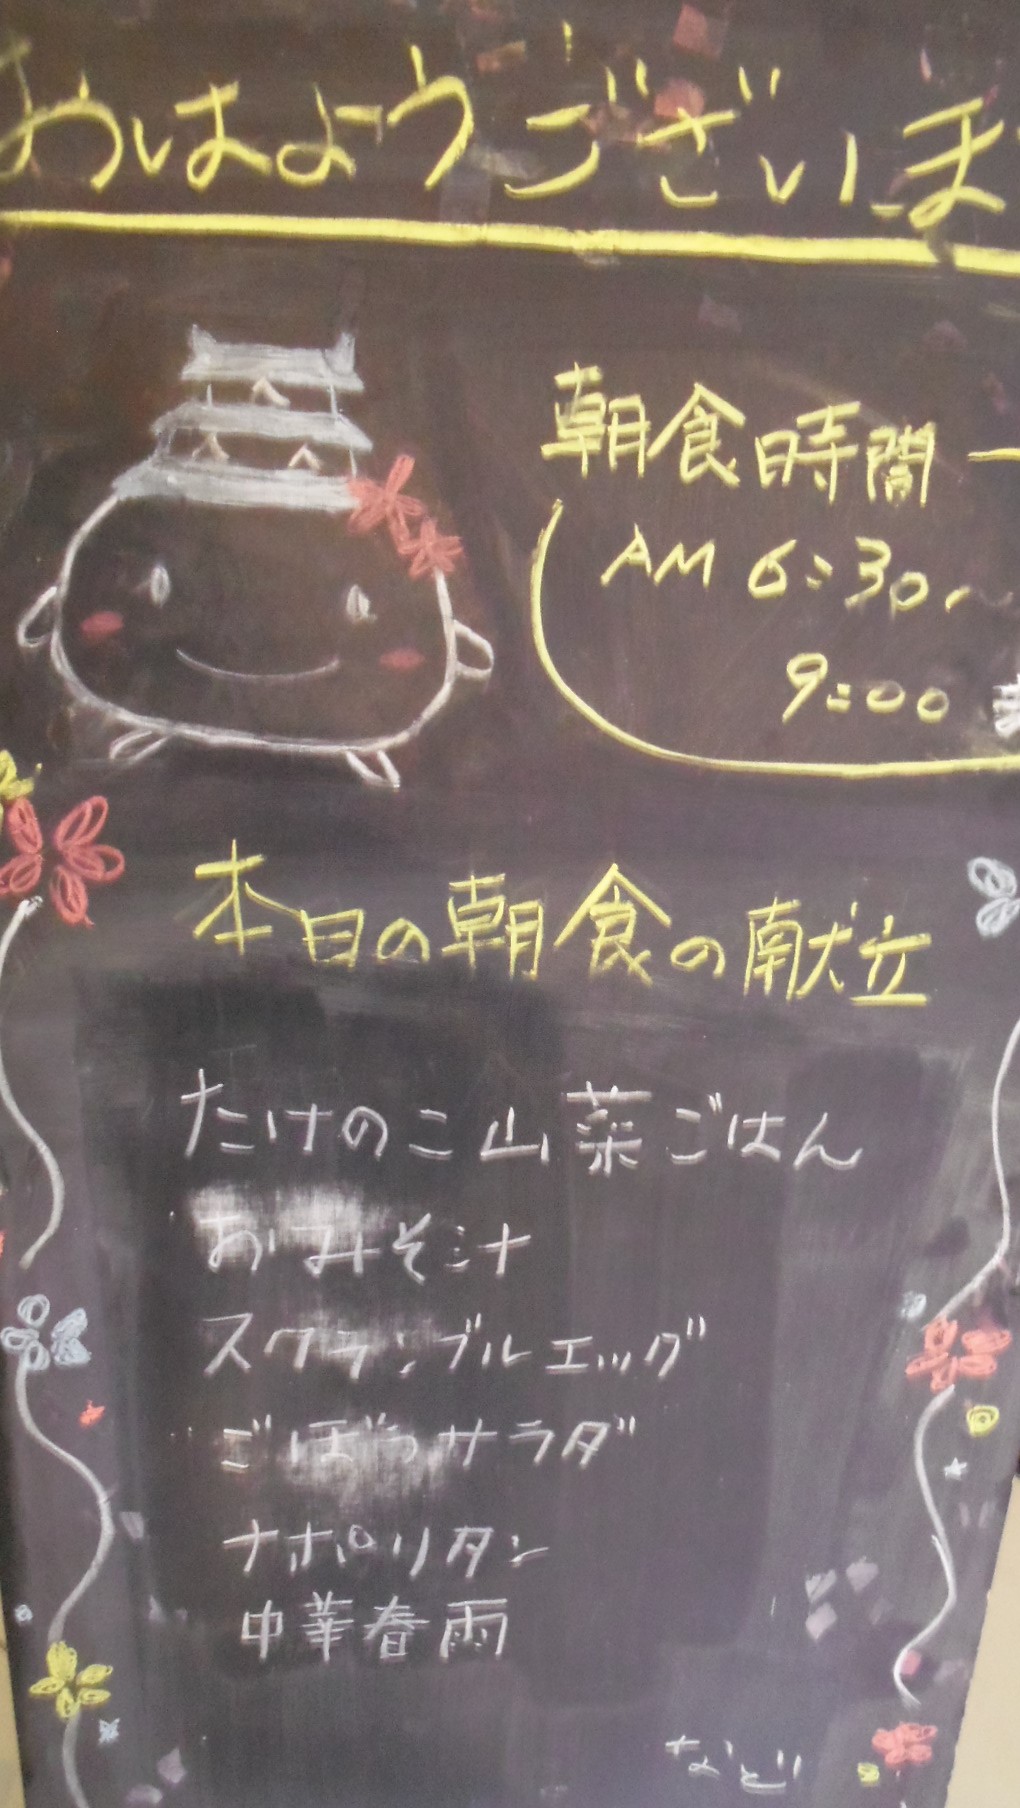 おはようございま
朝食時間
AM 6:30~
9:00
本日の朝食の献立
たけのこ山菜ごはん
おみそ汁
スクランブルエッグ
ごぼうサラダ
ナポリタン
中華春雨
など!!